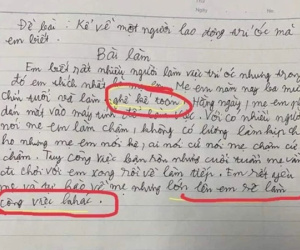 Đề bài : Kể về một người lao động trí óc mà
em biết.
Bài làm
Em biết rất nhiều người làm việc trí óc nhưng trong
đó em thích nhất là mẹ em. Mẹ em năm nay ba mươi
Chín tuổi mẹ làm nghề kế toán. Hằng ngày, mẹ em phải
dán mắt vào máy tính để làm việc. Với có nhiều người
nói mẹ em làm chậm, không có lương làm
họ nhưng mẹ em mới hé, ai nói cứ nói mẹ chăm cứ
chậm. Tuy công việc bận rộn nhưng cuối tuần mẹ vẫn
chơi với em xong rồi về làm tiếp. Em rất yêu
mẹ và tự hào về mẹ nhưng lớn lên em sẽ làm
công việc khác.